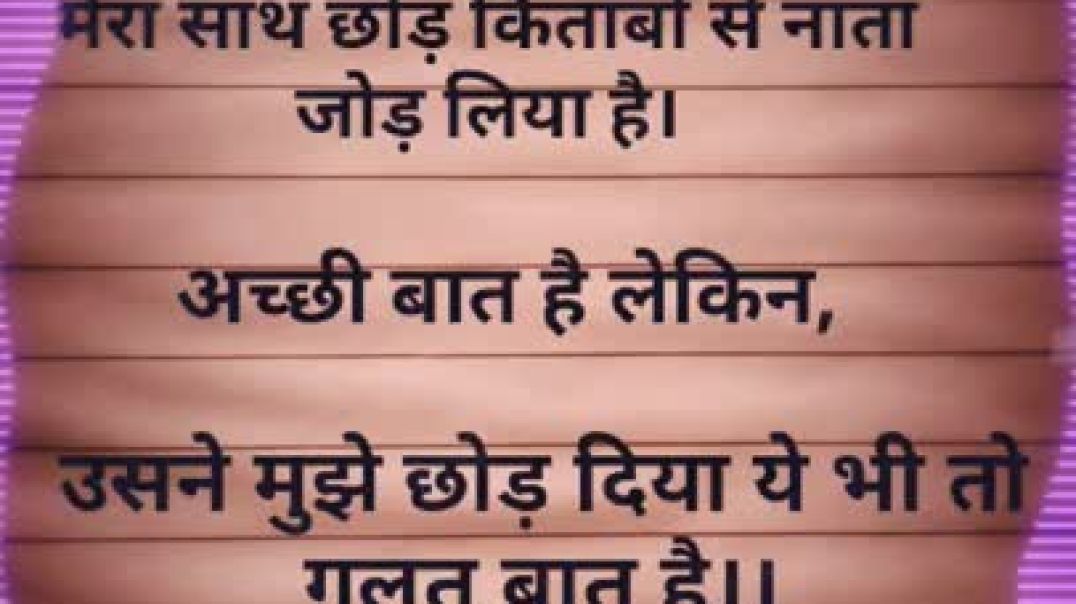 मेरा साथ छोड़ किताबों से नाता
जोड़ लिया है।
अच्छी बात है लेकिन,
उसने मुझे छोड़ दिया ये भी तो
गलत बात है।।